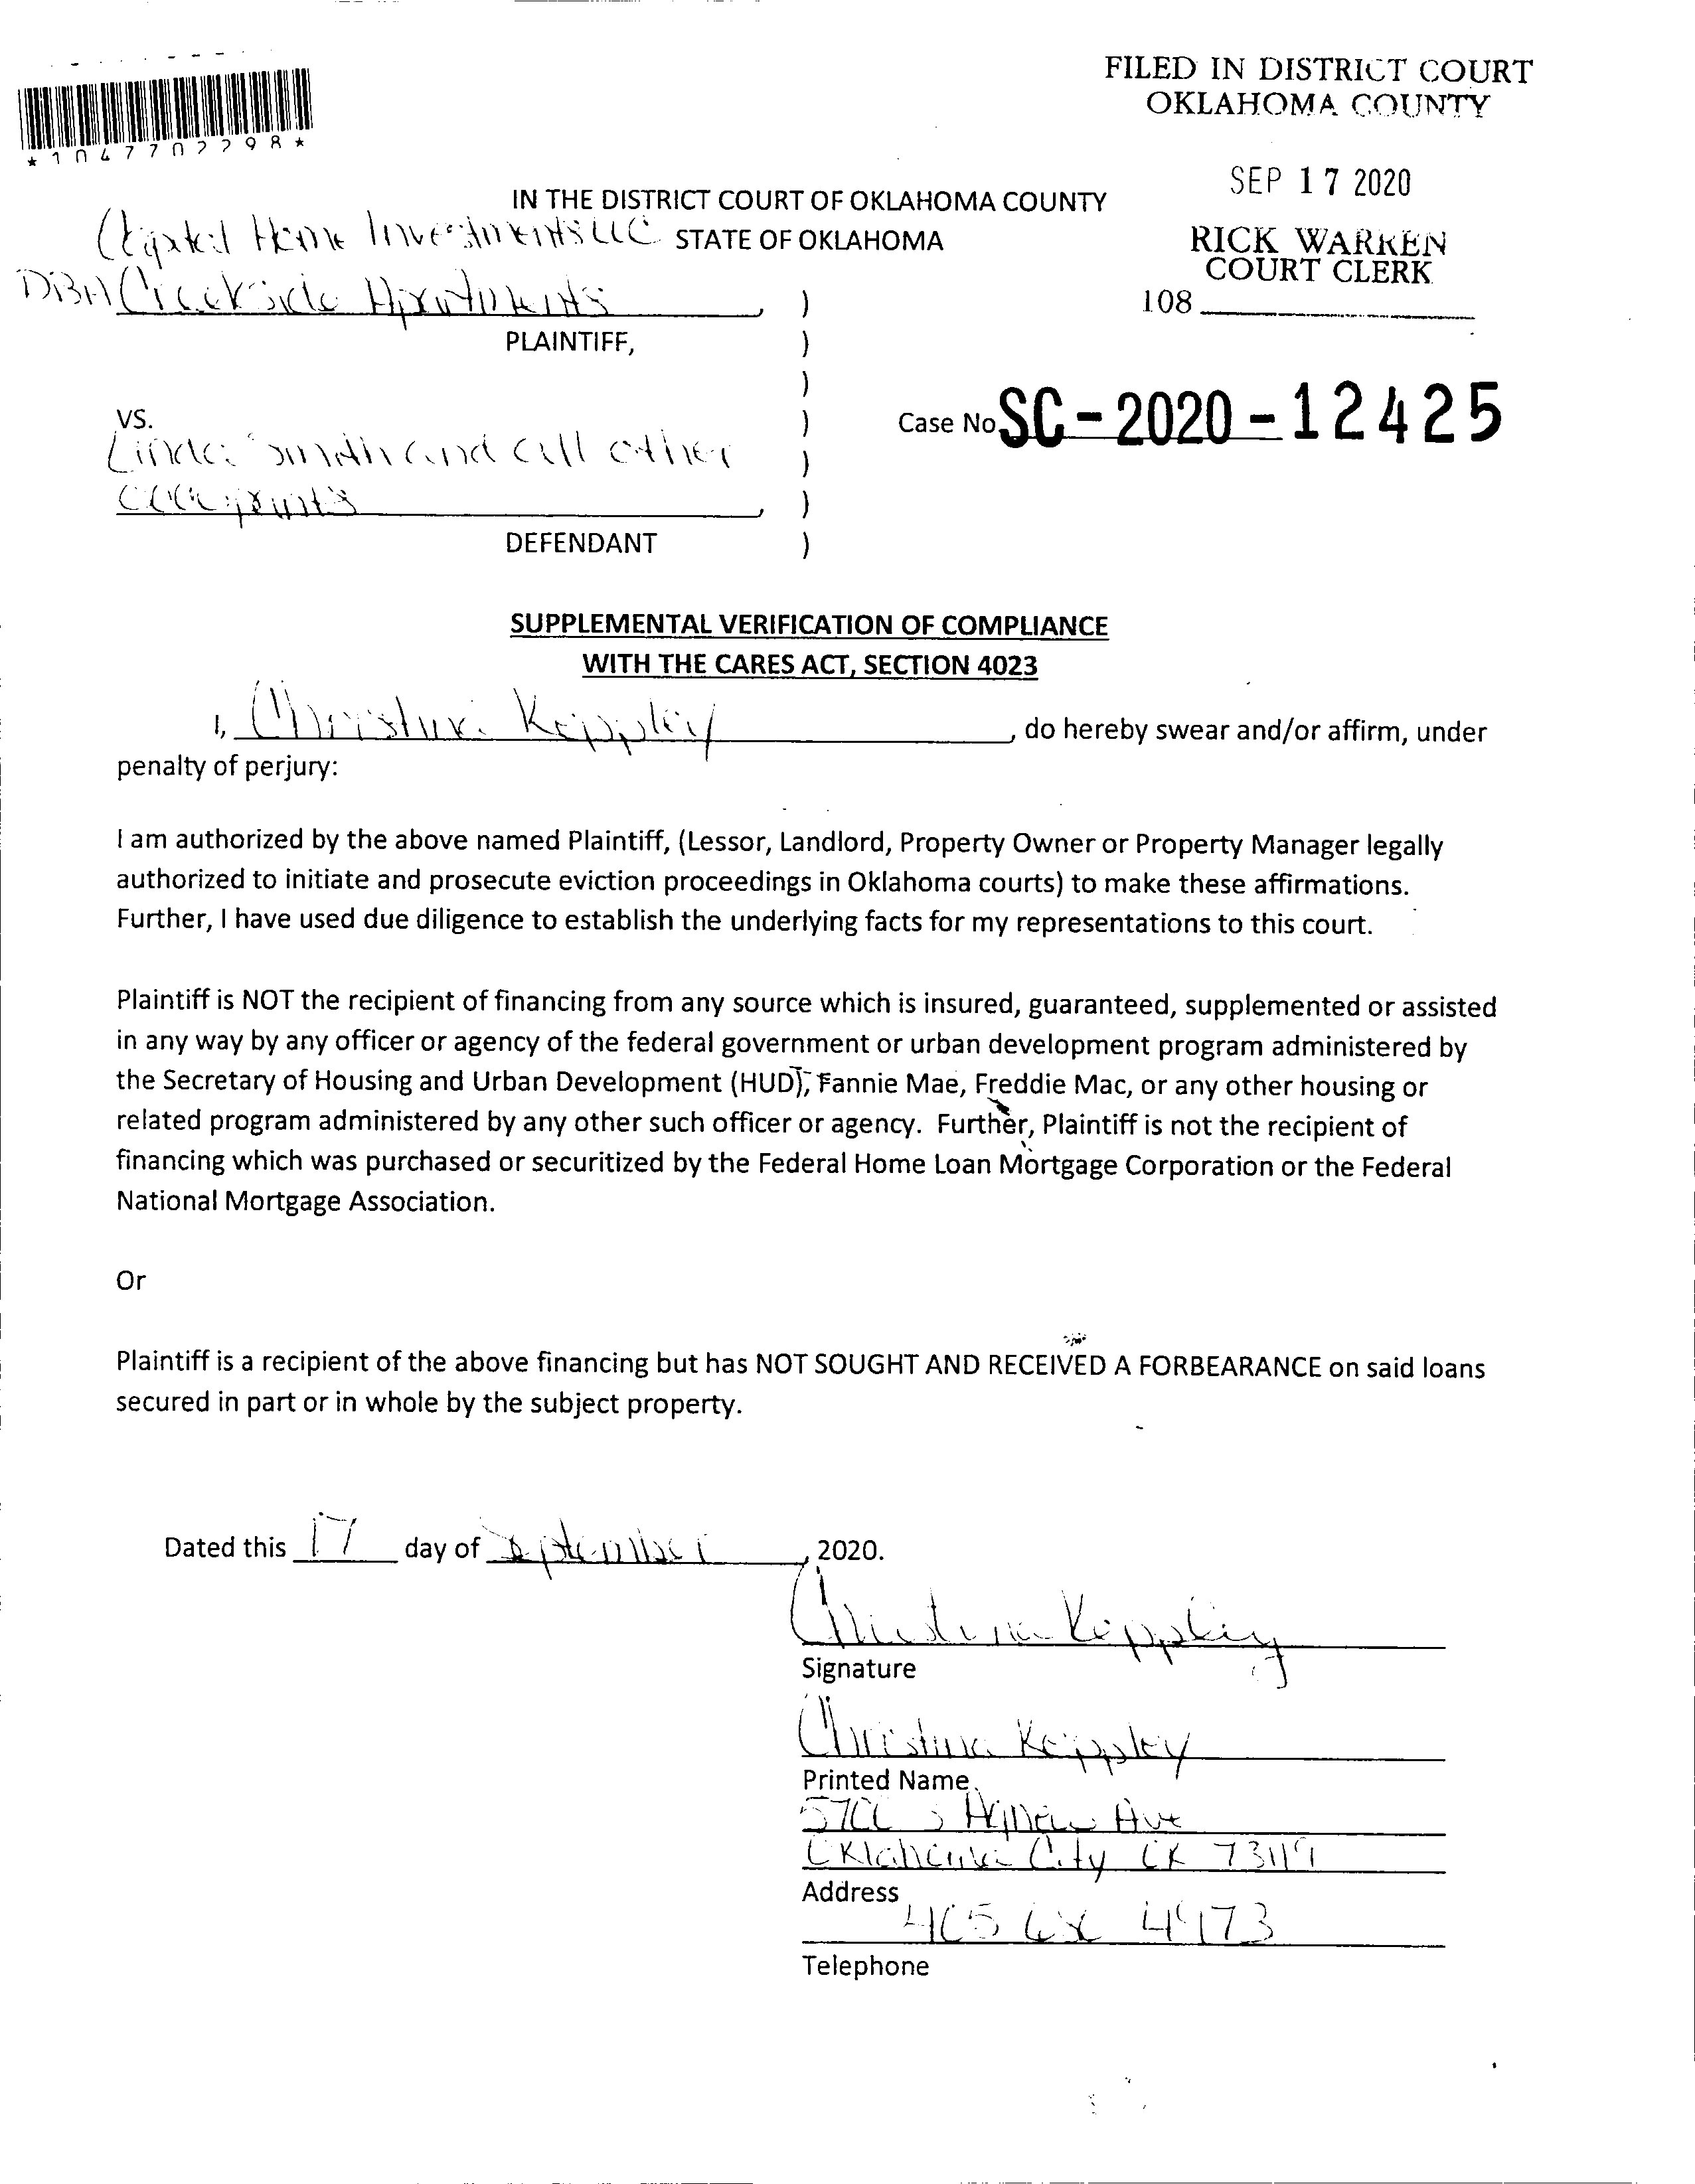 FILED IN DISTRICT COURT
OKLAHOMA COUNTY
*1047702298*
SEP 17 2020
IN THE DISTRICT COURT OF OKLAHOMA COUNTY
Capital Home Investments LLC STATE OF OKLAHOMA
RICK WARREN
COURT CLERK
DBA Creekside Apartments )
108
PLAINTIFF, )
)
VS. )
Case No SC-2020-12425
Linda Smith and all other )
occupants , )
DEFENDANT )
SUPPLEMENTAL VERIFICATION OF COMPLIANCE
WITH THE CARES ACT, SECTION 4023
I, Christina Keppley, do hereby swear and/or affirm, under
penalty of perjury:
I am authorized by the above named Plaintiff, (Lessor, Landlord, Property Owner or Property Manager legally
authorized to initiate and prosecute eviction proceedings in Oklahoma courts) to make these affirmations.
Further, I have used due diligence to establish the underlying facts for my representations to this court.
Plaintiff is NOT the recipient of financing from any source which is insured, guaranteed, supplemented or assisted
in any way by any officer or agency of the federal government or urban development program administered by
the Secretary of Housing and Urban Development (HUD), Fannie Mae, Freddie Mac, or any other housing or
related program administered by any other such officer or agency. Further, Plaintiff is not the recipient of
financing which was purchased or securitized by the Federal Home Loan Mortgage Corporation or the Federal
National Mortgage Association.
Or
Plaintiff is a recipient of the above financing but has NOT SOUGHT AND RECEIVED A FORBEARANCE on said loans
secured in part or in whole by the subject property.
Dated this 17 day of September, 2020.
Christina Keppley
Signature
Christina Keppley
Printed Name
5700 S Agnew Ave
Oklahoma City OK 73119
Address
405 4973
Telephone